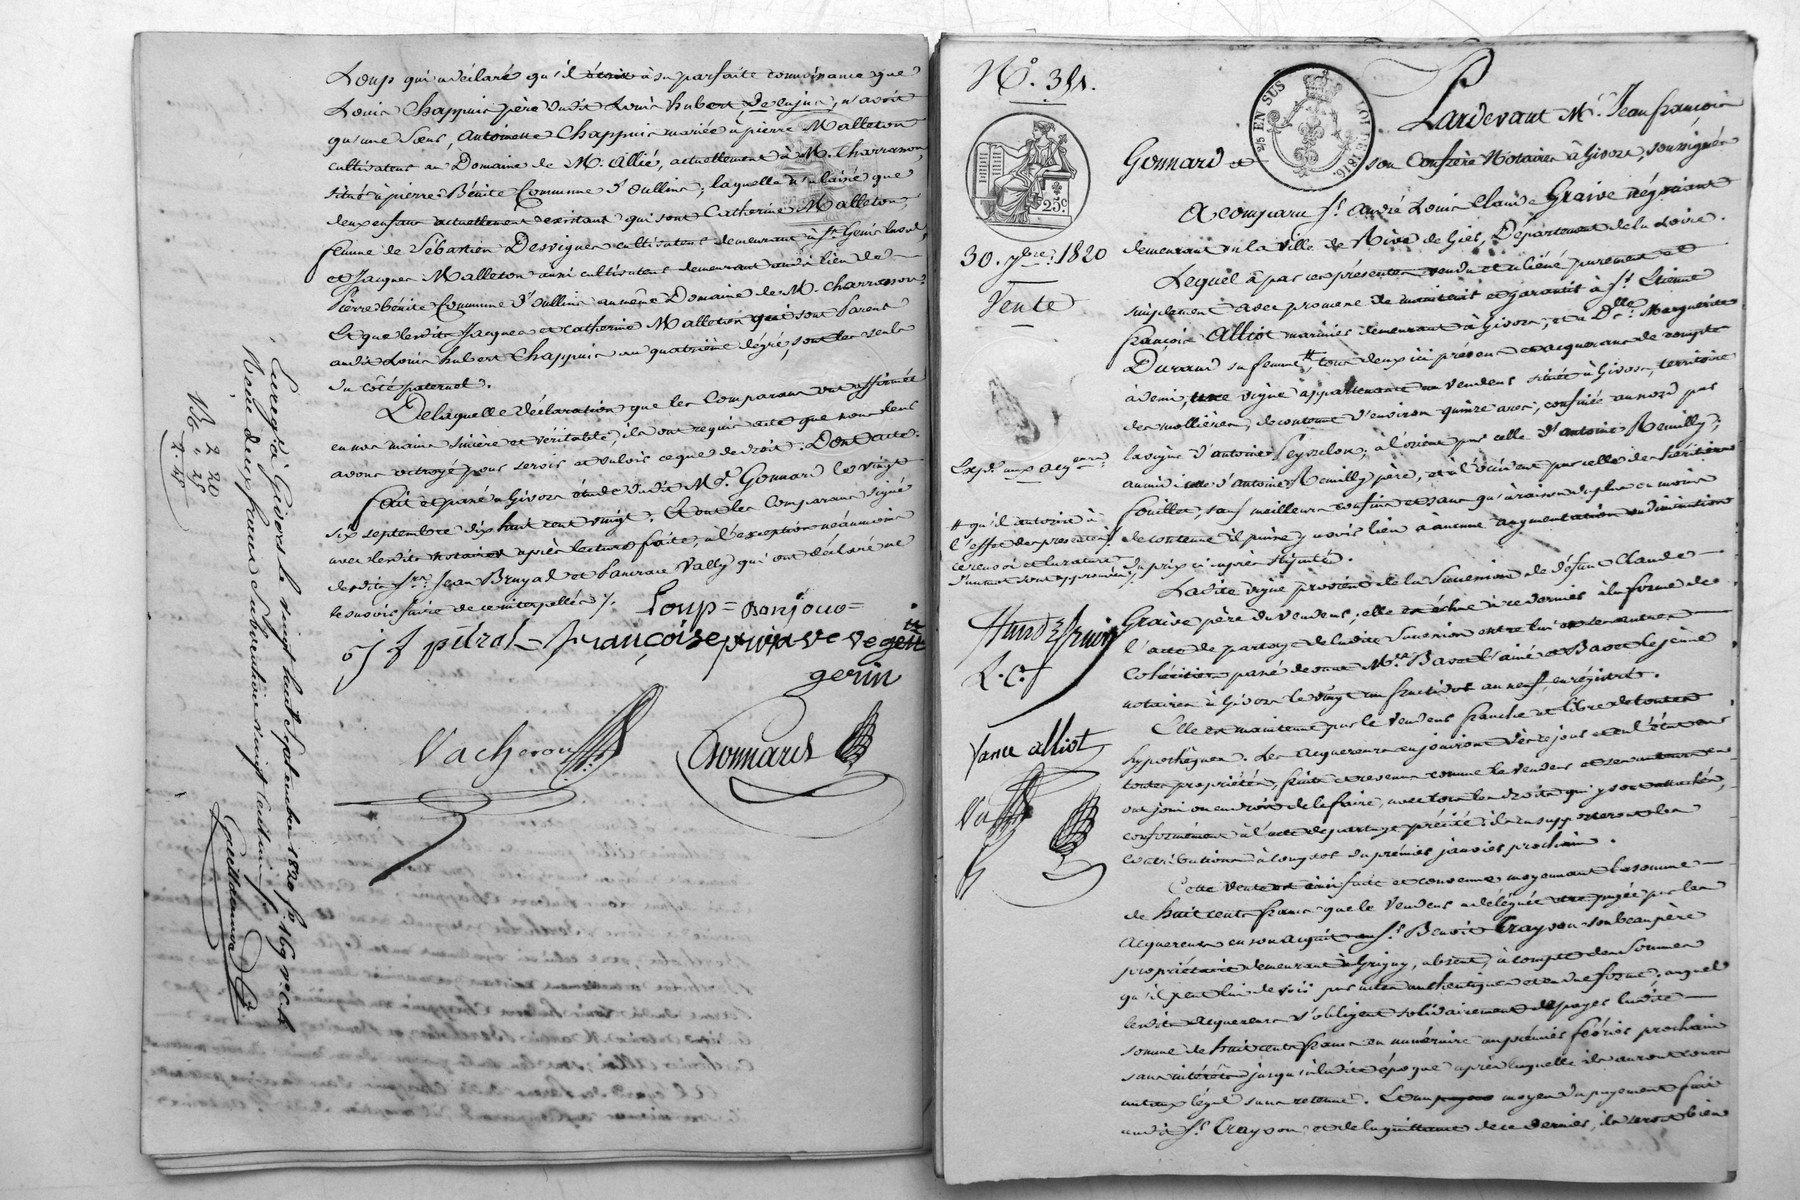 Loup qui a déclaré qu'il était à sa parfaite connoissance que
Louis Chappuis père dudit Louis hubert De enjus, n'avoit
qu'une Sœur, Antoinette Chappuis mariée à pierre Malleton
cultivateur au Domaine de M. Allié, actuellement à M. Charranson,
situé à pierre Bénite Commune d'Oullins; laquelle n'a laissé que
deux enfans actuellement existant qui sont Catherine Malleton,
femme de Sébastien Desvignes cultivateur demeurant à St Genis laval,
et Jacques Malleton aussi cultivateur demeurant audit lieu de
Pierre bénite Commune d'Oullins au même Domaine de M. Charranson.
Et que lesdits Jacques et Catherine Malleton qui sont Parens
audit Louis hubert Chappuis au quatrième dégré, sont les seuls
du côté paternel.
Delaquelle déclaration que les Comparans ont affirmée
en nos mains sincère et véritable, ils ont requis acte que nous leur
avons octroyé pour servir et valoir ce que de droit. Dont acte.
fait et passé à Givors étude dudit Me. Gonnard le vingt
six septembre dix huit cent vingt. Et ont les Comparans signé
avec lesdits notaires après lecture faite, à l'exception néanmoins
desdits Srs. Jean Bruyal et Pancrace Vally qui ont déclaré ne
le savoir faire de ce interpellés /.
Loup = Bonjour =
j f pitrat = françoise
gerin
Vacheron
Gonnard
Enregé à Givors le vingt huit septembre 1820 fo 169
Reçu deux francs Subvention vingt
2 20
25
2.45
Guillaume
No. 351.
25c
30. 7bre. 1820
Vente
Exp. aux acqrs.
# qu'il autorise à
l'effet des présentes
ce renvoi et la rature
d'un mot sont approuvés
L. C. f
Vance alliot
Va
EN SUS
LOI DE 1816
Pardevant Me. Jean françois
Gonnard et son Confrère Notaires à Givors, soussignés
A comparu Sr. André Louis Claude Graive négociant
demeurant en la ville de Rive de Gier, Département de la Loire.
Lequel a par ces présentes vendu et aliéné purement et
simplement avec promesse de maintenir et garantir à Sr. Etienne
françois Alliot marinier demeurant à Givors, et à De. Marguerite
Durand sa femme #, tous deux ici présens et acquerans de compte
à demi, une vigne appartenante au vendeur située à Givors, territoire
des mollières, de contenue d'environ quinze ares; confinée au nord par
la vigne d'antoine Peysselon; à l'orient par celle d'antoine Remilly;
au midi celle d'antoine Remilly père, et à l'occident par celle des héritiers
fouillet, sauf meilleurs confins et sans qu'à raison du plus ou moins
de contenue il puisse y avoir lieu à aucune augmentation ou diminution
du prix ci après stipulé.
Ladite vigne provient de la Succession de défunt Claude
Graive père du vendeur; elle est échue à ce dernier à la forme de
l'acte de partage de ladite Succession entre lui et ses autres
Cohéritiers passé devant Mes. Basset l'ainé et Basset le jeune
notaires à Givors le vingt un fructidor an neuf, enregistré.
Elle est maintenue par le vendeur franche et libre de toutes
hypothèques. Les acquereurs en jouiront dès ce jour et en l'état en
toute propriété, fruits et revenus comme le vendeur et ses auteurs en
ont joui ou eu droit de le faire, avec tous les droits qui y sont attachés,
conformément à l'acte de partage précité; ils en supporteront les
contributions à compter du premier janvier prochain.
Cette vente est ainsi faite et convenue moyennant la somme
de huit cents francs que le Vendeur a délégué être payée par les
Acquereurs en son acquit au Sr. Benoit Crayson son beau père
propriétaire demeurant à Grigny, absent, à compte des Sommes
qu'il peut lui devoir par actes authentiques et en due forme; auquel
lesdits acquereurs s'obligent solidairement de payer ladite
somme de huit cents francs en numéraire au premier février prochain
sans intérêts jusqu'à ladite époque après laquelle ils auront cours
au taux légal sans retenue. Et au moyen du payement fait
audit Sr. Crayson et de la quittance de ce dernier, ils seront bien